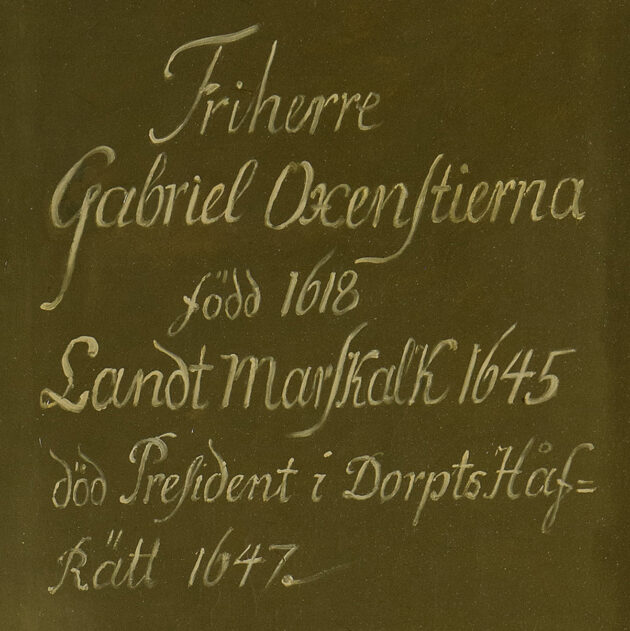 Friherre
Gabriel Oxenſtierna
född 1618
Landt Marſkalk 1645
död Preſident i Dorpts Håf=
Rätt 1647.